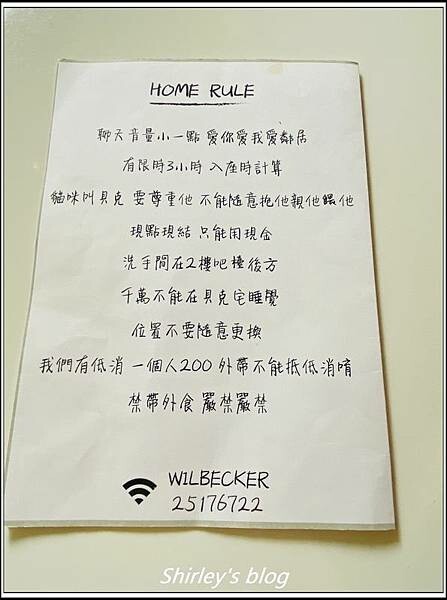 HOME RULE
聊天音量小一點 愛你愛我愛鄰居
有限時3小時 入座時計算
貓咪叫貝克 要尊重他 不能隨意抱他親他餵他
現點現結 只能用現金
洗手間在2樓吧檯後方
千萬不能在貝克宅睡覺
位置不要隨意更換
我們有低消 一個人200 外帶不能抵低消唷
禁帶外食 嚴禁嚴禁
WILBECKER
25176722
Shirley's blog